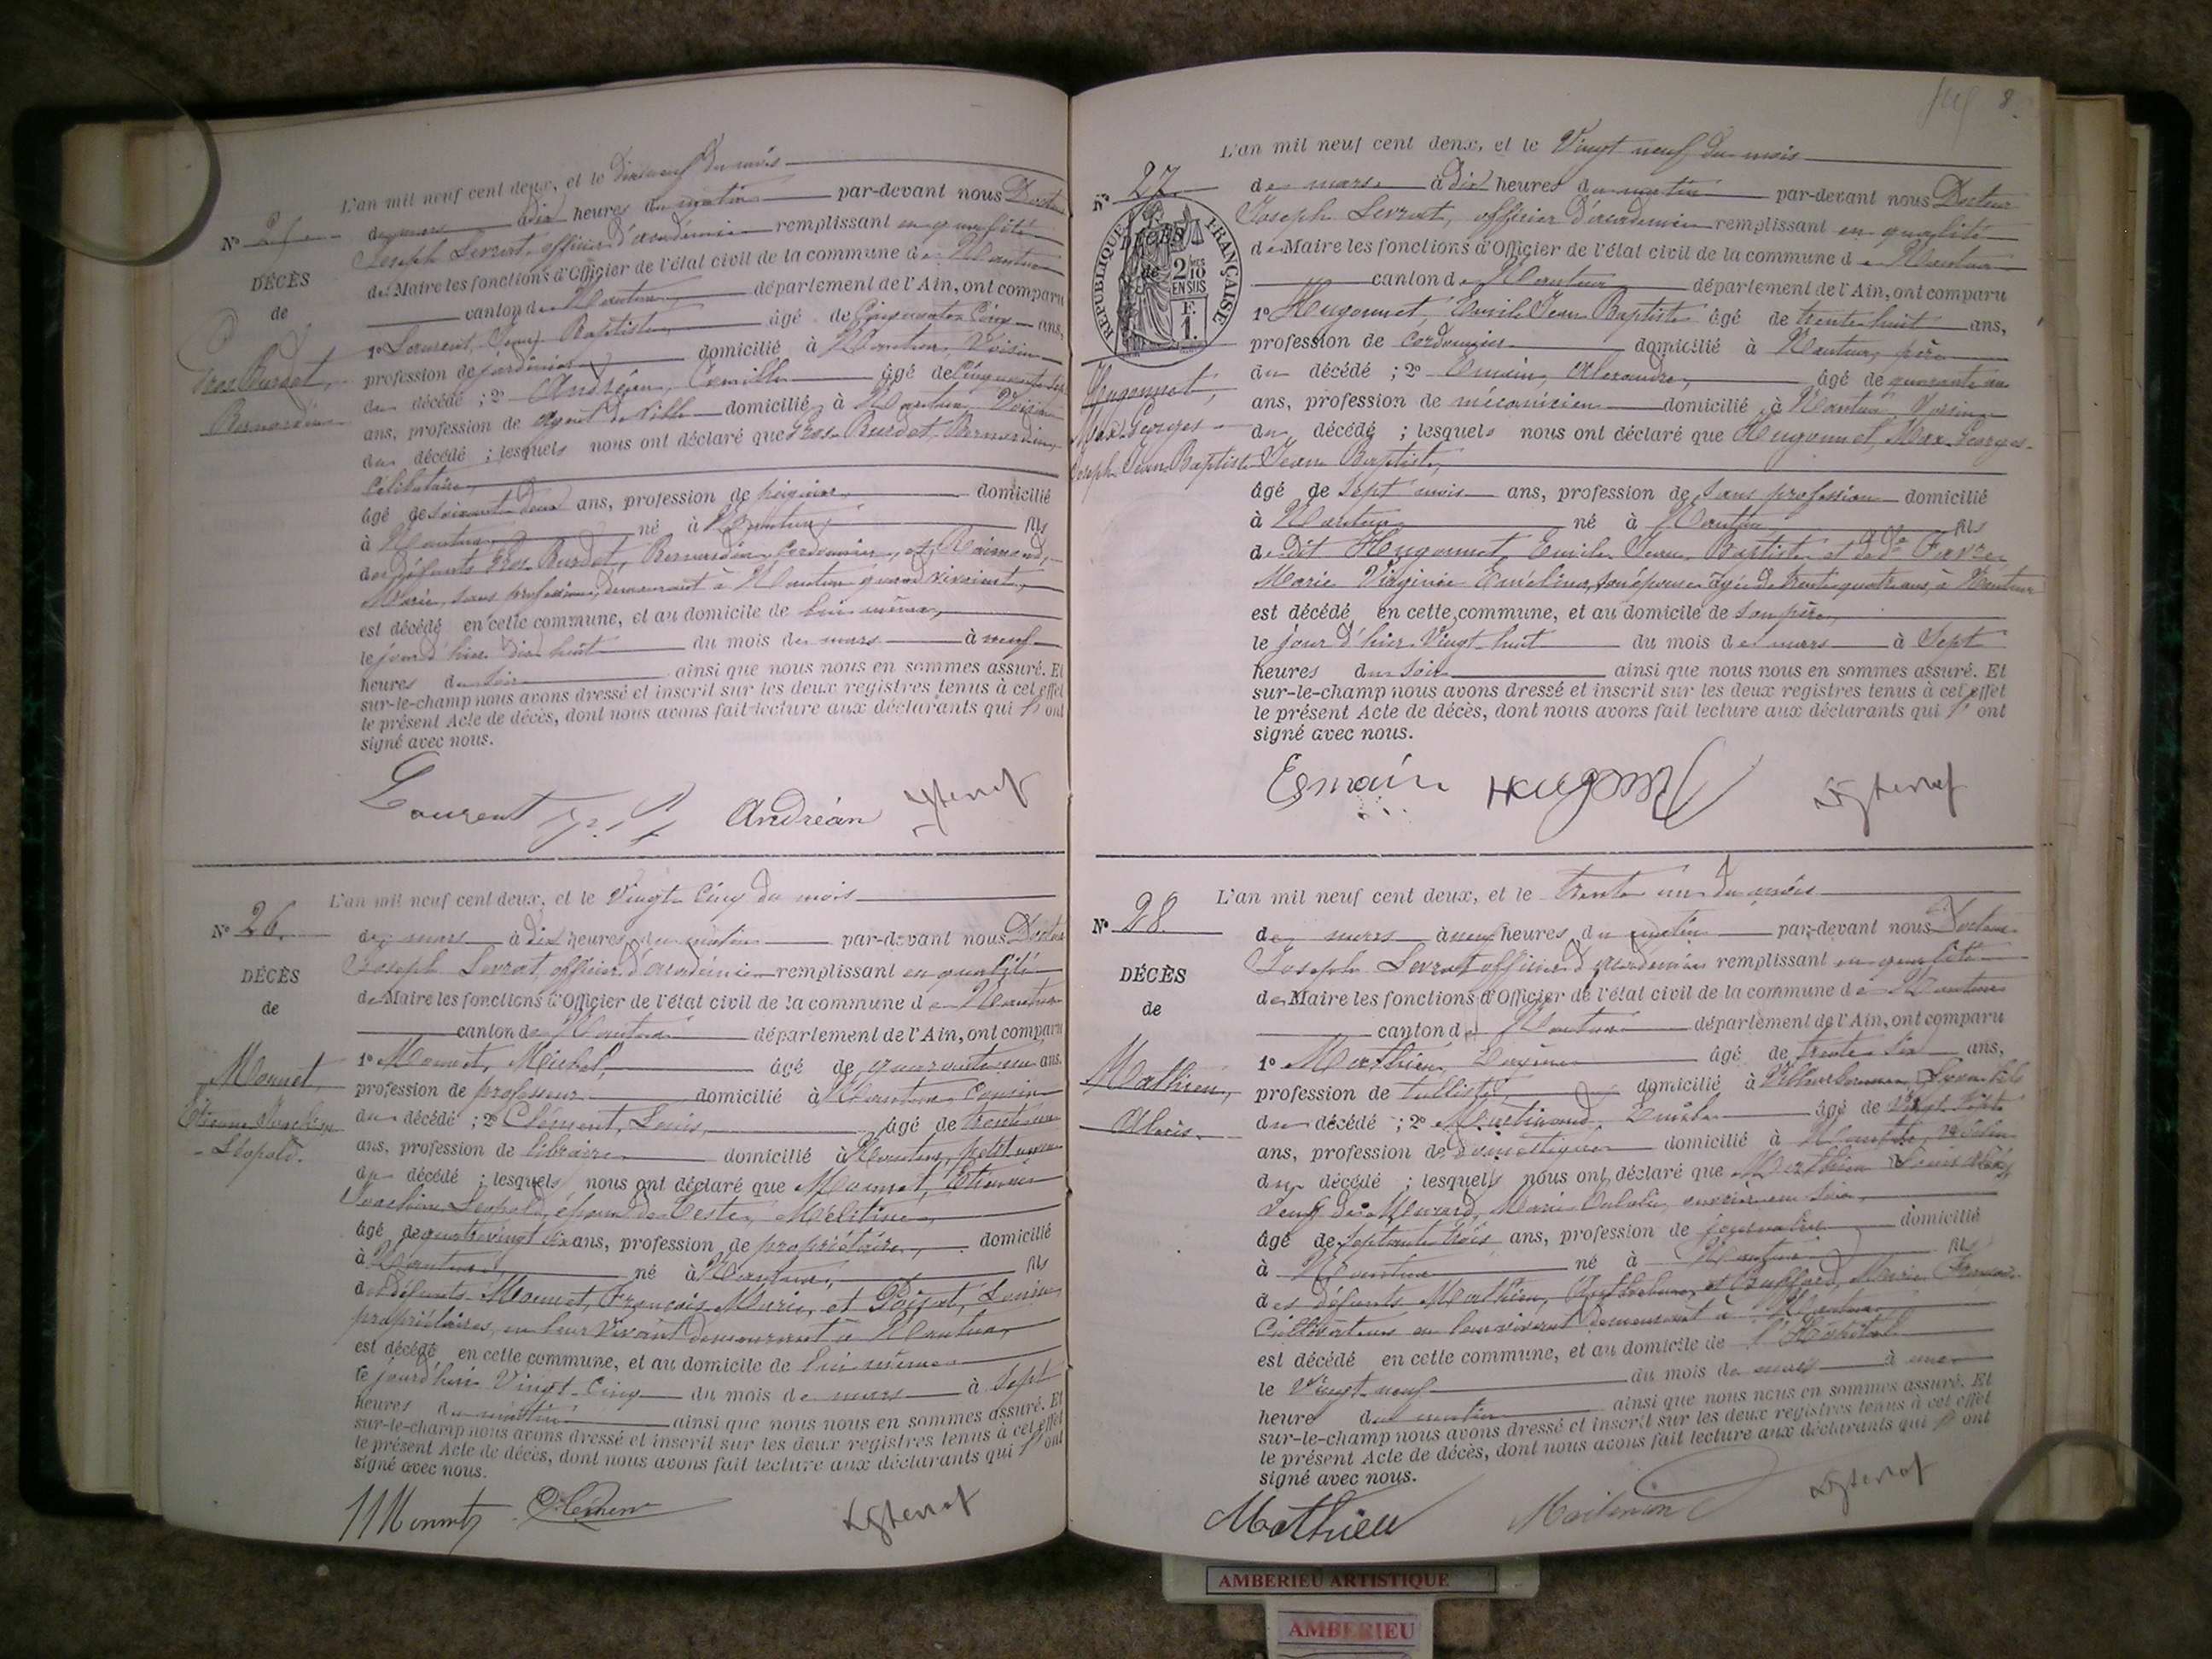 L'an mil neuf cent deux, et le dix neuf du mois
N° 25
de mars à dix heures du matin par-devant nous Docteur
Joseph Levrat, officier d'académie remplissant en qualité
DÉCÈS
de Maire les fonctions d'Officier de l'état civil de la commune de Nantua
de
canton de Nantua département de l'Ain, ont comparu
1° Laurent, Jean Baptiste, âgé de Cinquante Cinq ans,
Gros Burdet,
profession de jardinier domicilié à Nantua, Voisin
Bernardin
du décédé ; 2° Andréan, Camille âgé de Cinquante
ans, profession de Agent de Ville domicilié à Nantua, Voisin
du décédé ; lesquels nous ont déclaré que Gros-Burdet, Bernardin,
Célibataire,
âgé de soixante deux ans, profession de peigneur, domicilié
à Nantua né à Nantua, fils
des défunts Gros-Burdet, Bernardin, Cordonnier, et Raimond,
Marie, sans profession, demeurant à Nantua quand vivaient,
est décédé en cette commune, et au domicile de lui même,
le jour d'hier dix huit du mois de mars à neuf
heures du soir ainsi que nous nous en sommes assuré. Et
sur-le-champ nous avons dressé et inscrit sur les deux registres tenus à cet effet
le présent Acte de décès, dont nous avons fait lecture aux déclarants qui l'ont
signé avec nous.
Laurent Andréan
L'an mil neuf cent deux, et le Vingt Cinq du mois
N° 26.
de mars à dix heures du matin par-devant nous Docteur
Joseph Levrat, officier d'académie remplissant en qualité
DÉCÈS
de Maire les fonctions d'Officier de l'état civil de la commune de Nantua
de
canton de Nantua département de l'Ain, ont comparu
1° Monnet, Michel, âgé de quarante un ans,
Monnet,
profession de professeur domicilié à Nantua Cousin
Etienne Joachim
du décédé ; 2° Clément, Louis, âgé de trente
Léopold.
ans, profession de libraire domicilié à Nantua, petit neveu
du décédé ; lesquels nous ont déclaré que Monnet, Etienne
Joachim Léopold, époux de Teste, Mélitine,
âgé de quatre vingt six ans, profession de propriétaire, domicilié
à Nantua, né à Nantua, fils
des défunts Monnet, François Marie, et Poizat, Louise,
propriétaires, en leur vivant demeurant à Nantua,
est décédé en cette commune, et au domicile de lui même
le jourd'hui Vingt-Cinq du mois de mars à Sept
heures du matin ainsi que nous nous en sommes assuré. Et
sur-le-champ nous avons dressé et inscrit sur les deux registres tenus à cet effet
le présent Acte de décès, dont nous avons fait lecture aux déclarants qui l'ont
signé avec nous.
Monnet Clément
8.
L'an mil neuf cent deux, et le Vingt neuf du mois
N° 27.
de mars à dix heures du matin par-devant nous Docteur
Joseph Levrat, officier d'académie remplissant en qualité
RÉPUBLIQUE FRANÇAISE
2/10 EN SUS
F. 1.
DÉCÈS
de
de Maire les fonctions d'Officier de l'état civil de la commune de Nantua
canton de Nantua département de l'Ain, ont comparu
1° Hugonnet, Emile Jean Baptiste âgé de trente huit ans,
profession de Cordonnier domicilié à Nantua, père
Hugonnet,
du décédé ; 2° Emain, Alexandre, âgé de quarante
Max Georges
ans, profession de mécanicien domicilié à Nantua Voisin
Joseph Jean Baptiste
du décédé ; lesquels nous ont déclaré que Hugonnet, Max Georges
Jean Baptiste,
âgé de Sept mois ans, profession de sans profession domicilié
à Nantua né à Nantua fils
de dit Hugonnet, Emile Jean Baptiste et de Favre
Marie Virginie Emélina, son épouse âgée de trente quatre ans, à Nantua
est décédé en cette commune, et au domicile de son père,
le jour d'hier Vingt huit du mois de mars à Sept
heures du soir ainsi que nous nous en sommes assuré. Et
sur-le-champ nous avons dressé et inscrit sur les deux registres tenus à cet effet
le présent Acte de décès, dont nous avons fait lecture aux déclarants qui l'ont
signé avec nous.
Emain
L'an mil neuf cent deux, et le trente un du mois
N° 28
de mars à neuf heures du matin par-devant nous Docteur
Joseph Levrat officier d'académie remplissant en qualité
DÉCÈS
de Maire les fonctions d'Officier de l'état civil de la commune de Nantua
de
canton de Nantua département de l'Ain, ont comparu
1° Mathieu, âgé de trente six ans,
Mathieu,
profession de tulliste domicilié à Villeurbanne, fils
Alexis.
du décédé ; 2° Emile âgé de Vingt Sept
ans, profession de domestique domicilié à
du décédé ; lesquels nous ont déclaré que Mathieu Louis Alexis
Veuf de Menard, Marie
âgé de Septante trois ans, profession de journalier domicilié
à Nantua né à Nantua fils
des défunts Mathieu, et Marie
Cultivateurs en leur vivant demeurant à Nantua,
est décédé en cette commune, et au domicile de l'Hôpital
le Vingt-neuf du mois de mars à une
heure du matin ainsi que nous nous en sommes assuré. Et
sur-le-champ nous avons dressé et inscrit sur les deux registres tenus à cet effet
le présent Acte de décès, dont nous avons fait lecture aux déclarants qui l'ont
signé avec nous.
Mathieu
AMBERIEU ARTISTIQUE
AMBERIEU